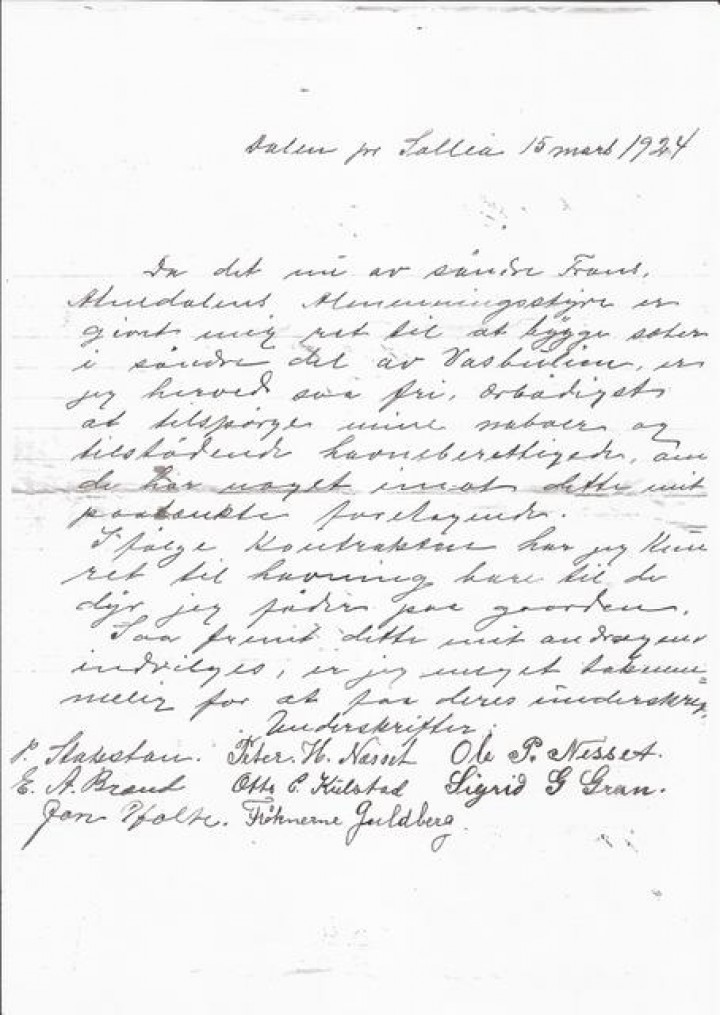 Dalen pr Sollia 15 mars 1924
Da det nu av søndre Trons,
Almedalens Almenningsstyre er
givet mig ret til at bygge sæter
i søndre del av Vasbulien, er
jeg herved saa fri, ærbødigst
at tilspørge mine naboer og
tilstødende havneberettigede, om
de har noget imot dette mit
paatænkte foretagende.
Ifølge Kontrakten har jeg kun
ret til havning bare til de
dyr jeg føder paa gaarden.
Saa fremt dette mit andragende
indvilges, er jeg meget taknem=
melig for at faa deres underskrif.
Underskrifter:
P. Stakston. Peter. H. Næsset Ole P. Nesset.
E. A. Brænd Otto C. Kulstad Sigrid G Gran.
Jon Holte. Frøknerne Guldberg.